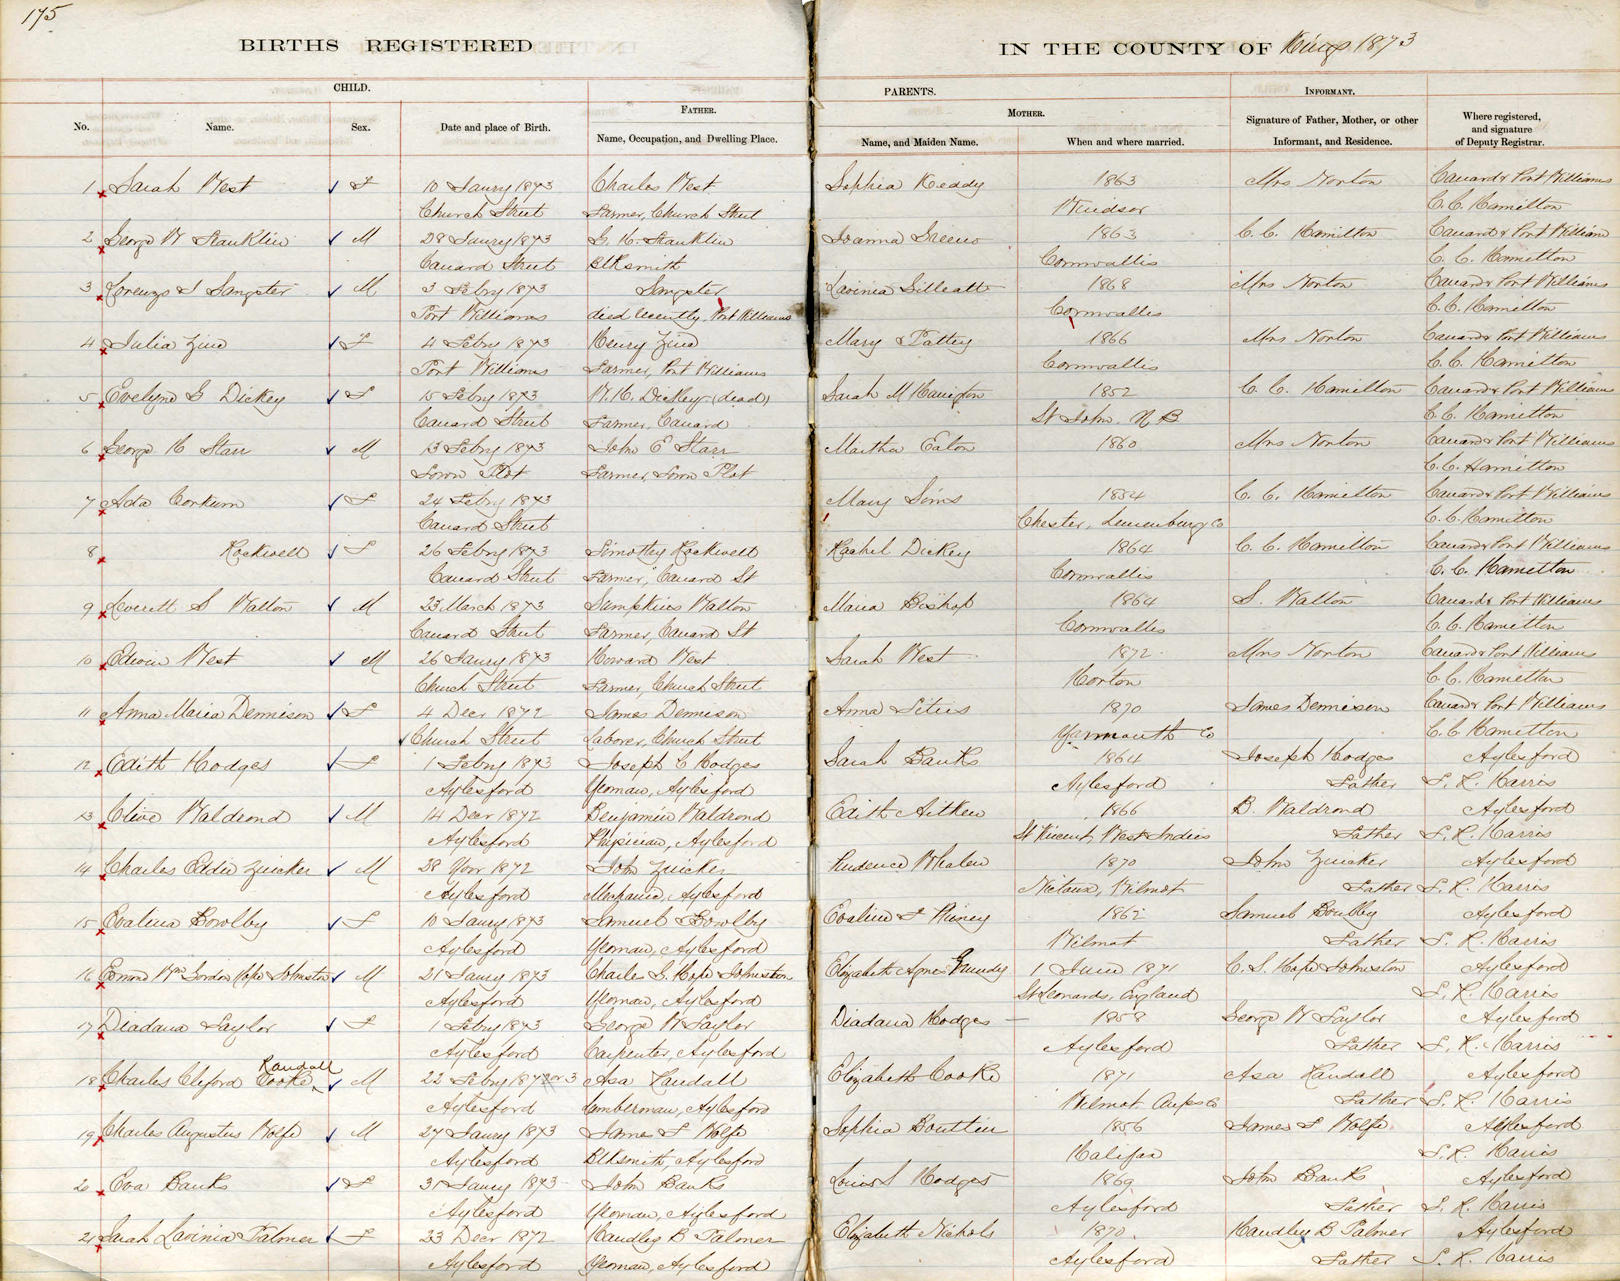 175
BIRTHS REGISTERED IN THE COUNTY OF Kings 1873
CHILD. PARENTS. INFORMANT.
FATHER. MOTHER.
No. Name. Sex. Date and place of Birth. Name, Occupation, and Dwelling Place. Name, and Maiden Name. When and where married. Signature of Father, Mother, or other Informant, and Residence. Where registered, and signature of Deputy Registrar.
1 Sarah West F 10 Janry 1873 Charles West Sophia Keddy 1863 Mrs Norton Canard & Port Williams
Church Street Farmer, Church Street Windsor C. C. Hamilton
2 George W Franklin M 28 Janry 1873 G. H. Franklin Joanna Greeno 1863 C. C. Hamilton Canard & Port William
Canard Street Blksmith Cornwallis C. C. Hamilton
3 Lorenzo S Sangster M 3 Febry 1873 Sangster Lavinia Gilleatt 1868 Mrs Norton Canard & Port Williams
Port Williams died recently, Port Williams Cornwallis C. C. Hamilton
4 Julia Zine F 4 Febry 1873 Henry Zine Mary Pattey 1866 Mrs Norton Canard & Port Williams
Port Williams Farmer, Port Williams Cornwallis C. C. Hamilton
5 Evelyne G Dickey F 15 Febry 1873 W. H. Dickey (dead) Sarah M 1852 C. C. Hamilton Canard & Port William
Canard Street Farmer, Canard St John N B C. C. Hamilton
6 George H Starr M 13 Febry 1873 John E Starr Martha Eaton 1860 Mrs Norton Canard & Port Williams
Town Plot Farmer, Town Plot C. C. Hamilton
7 Ada Corkum F 24 Febry 1873 Mary Sims 1854 C. C. Hamilton Canard & Port Williams
Canard Street Chester, Lunenburg Co C. C. Hamilton
8 Rockwell F 26 Febry 1873 Timothy Rockwell Rachel Dickey 1864 C. C. Hamilton Canard & Port Williams
Canard Street Farmer, Canard St Cornwallis C. C. Hamilton
9 Everett S Walton M 23 March 1873 Walton Maria Bishop 1864 S. Walton Canard & Port Williams
Canard Street Farmer, Canard St Cornwallis C. C. Hamilton
10 Edwin West M 26 Janry 1873 Howard West Sarah West 1872 Mrs Norton Canard & Port Williams
Church Street Farmer, Church Street Horton C. C. Hamilton
11 Anna Maria Dennison F 4 Decr 1872 James Dennison Anna Titus 1870 James Dennison Canard & Port Williams
Church Street Laborer, Church Street Yarmouth Co C. C. Hamilton
12 Edith Hodges F 1 Febry 1873 Joseph C Hodges Sarah Banks 1864 Joseph Hodges Aylesford
Aylesford Yeoman, Aylesford Aylesford Father L. R. Harris
13 Clive Waldrond M 14 Decr 1872 Benjamin Waldrond Edith Aitken 1866 B. Waldrond Aylesford
Aylesford Physician, Aylesford St Vincent, West Indies Father L. R. Harris
14 Charles Eddie Zwicker M 28 Novr 1872 John Zwicker Prudence Whalen 1870 John Zwicker Aylesford
Aylesford Mechanic, Aylesford Nictaux, Wilmot Father L. R. Harris
15 Evalina Bowlby F 10 Janry 1873 Samuel Bowlby Evaline 1862 Samuel Bowlby Aylesford
Aylesford Yeoman, Aylesford Wilmot Father L. R. Harris
16 Edmond Wm Gordon Hope Johnston M 21 Janry 1873 Charles G. Hope Johnston Elizabeth Agnes Grundy 1 June 1871 C. S. Hope Johnston Aylesford
Aylesford Yeoman, Aylesford St Leonards, England L. R. Harris
17 Diadana Taylor F 1 Febry 1873 George W Taylor Diadana Hodges 1858 George W Taylor Aylesford
Aylesford Carpenter, Aylesford Aylesford Father L. R. Harris
Randall
18 Charles Cliford Cooke M 22 Febry 1872 or 3 Asa Randall Elizabeth Cooke 1871 Asa Randall Aylesford
Aylesford Lumberman, Aylesford Wilmot Annps Co Father L. R. Harris
19 Charles Augustus Wolfe M 27 Janry 1873 James F Wolfe Sophia Bouttin 1856 James F Wolfe Aylesford
Aylesford Blksmith, Aylesford Halifax L. R. Harris
20 Eva Banks F 31 Janry 1873 John Banks Louisa S Hodges 1869 John Banks Aylesford
Aylesford Yeoman, Aylesford Aylesford Father L. R. Harris
21 Sarah Lavinia Palmer F 23 Decr 1872 Handley B Palmer Elizabeth Nichols 1870 Handley B Palmer Aylesford
Aylesford Yeoman, Aylesford Aylesford Father L. R. Harris